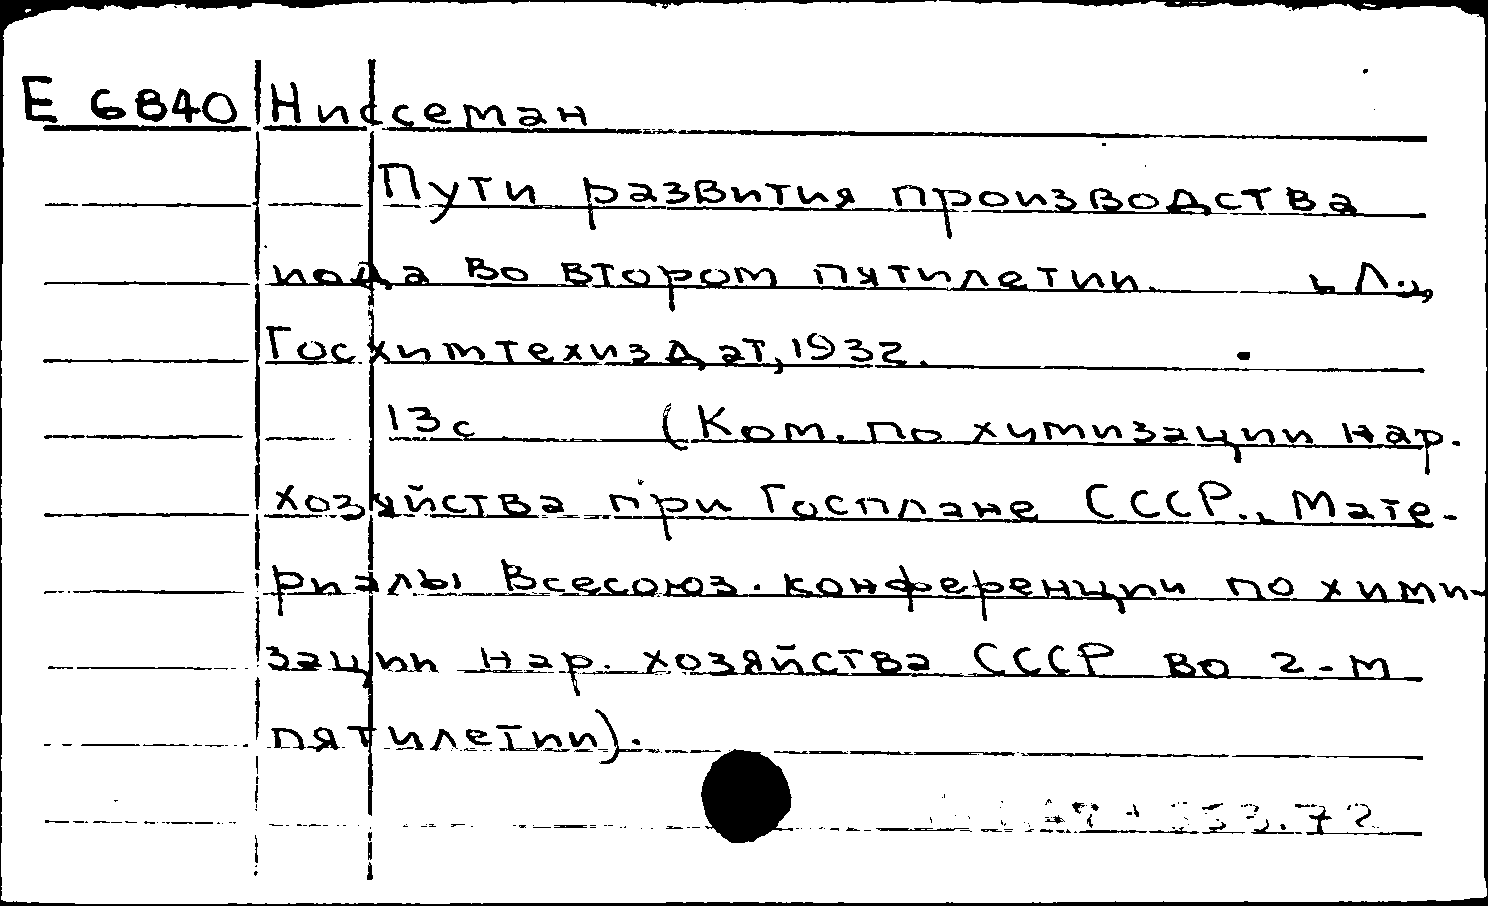 Е 6840 Ниссеман
Пути развития производства
иода во втором пятилетии. Л.,
Госхимтехиздат, 1932.
13с (Ком. по химизации нар.
хозяйства при Госплане СССР., Мате-
риалы Всесоюз. конференции по хими-
зации нар. хозяйства СССР во 2-м
пятилетии).